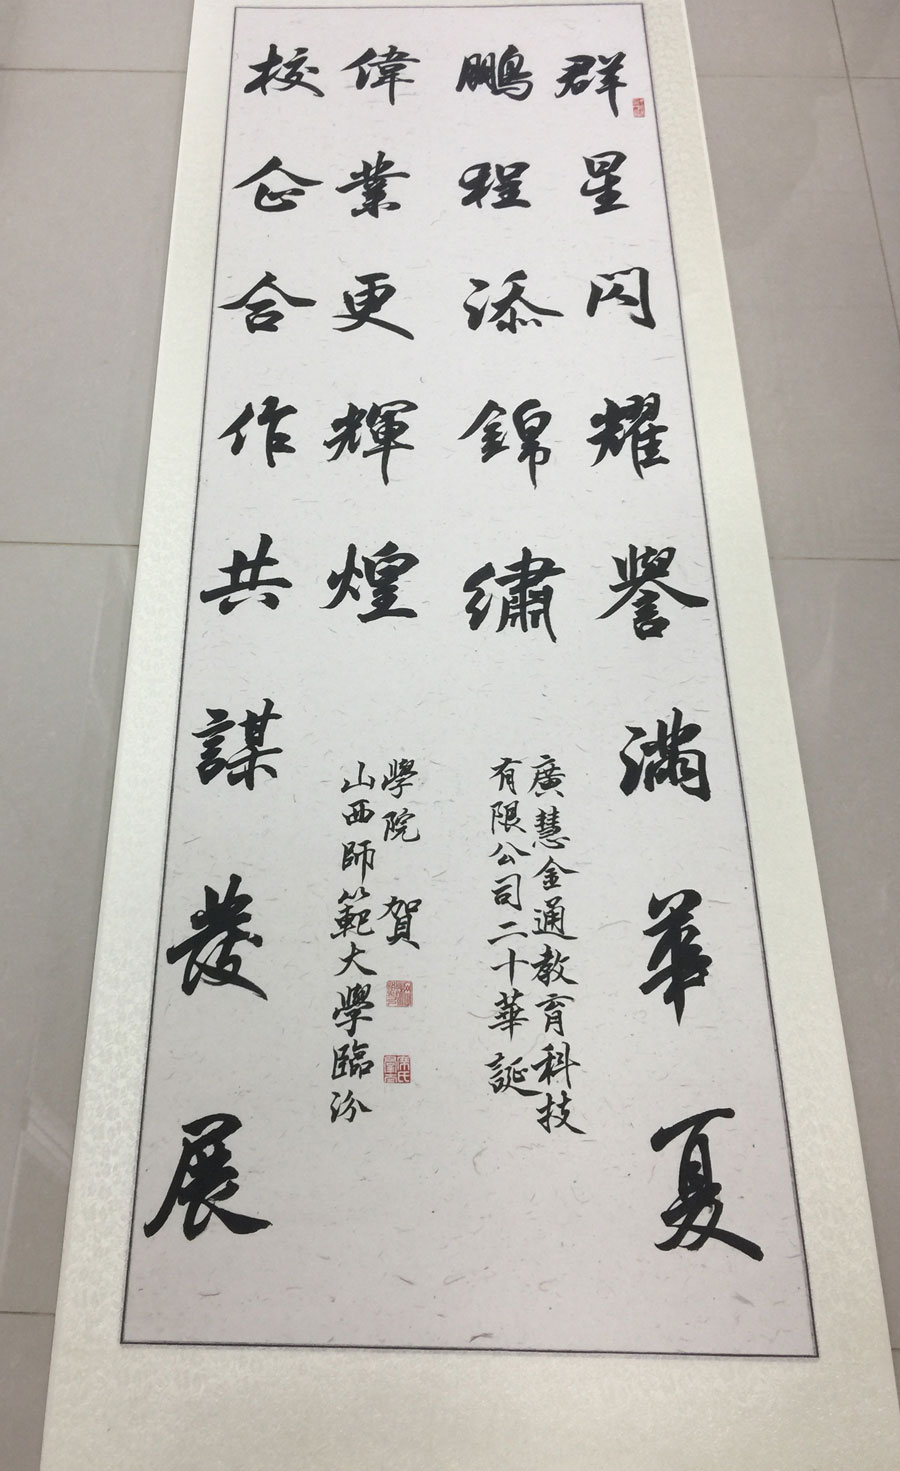 群星閃耀譽滿華夏
鵬程添錦繡
廣慧金通教育科技
有限公司二十華誕
偉業更輝煌
校企合作共謀發展
學院 賀
山西師範大學臨汾